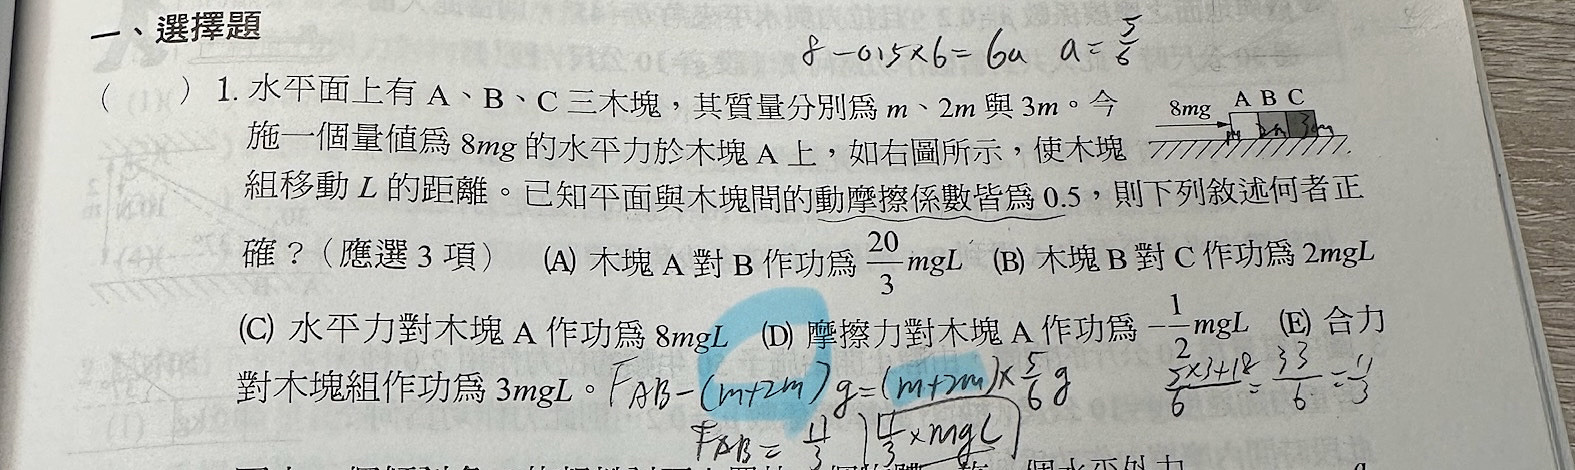 一、選擇題
8-0.5×6=6a a=5/6
( ) 1. 水平面上有 A、B、C 三木塊，其質量分別為 m、2m 與 3m。今
8mg A B C
m 2m 3m
施一個量值為 8mg 的水平力於木塊 A 上，如右圖所示，使木塊
組移動 L 的距離。已知平面與木塊間的動摩擦係數皆為 0.5，則下列敘述何者正
確？（應選 3 項） (A) 木塊 A 對 B 作功為 20/3 mgL (B) 木塊 B 對 C 作功為 2mgL
(C) 水平力對木塊 A 作功為 8mgL (D) 摩擦力對木塊 A 作功為 -1/2 mgL (E) 合力
對木塊組作功為 3mgL。
F AB-(m+2m)g=(m+2m)×5/6 g
5×3+18/6=33/6=11/3
F AB=11/3
×mgL